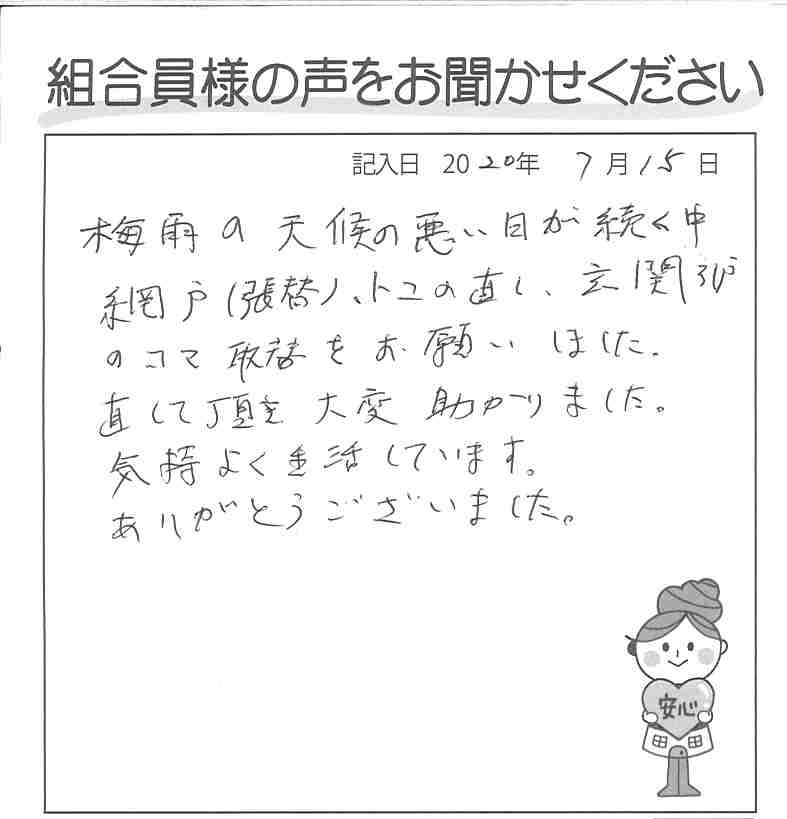 組合員様の声をお聞かせください
記入日 2020年 7月15日
梅雨の天候の悪い日が続く中
網戸(張替)、トユの直し、玄関引戸
のコマ取替をお願いしました。
直して頂き大変助かりました。
気持よく生活しています。
ありがとうございました。
安心